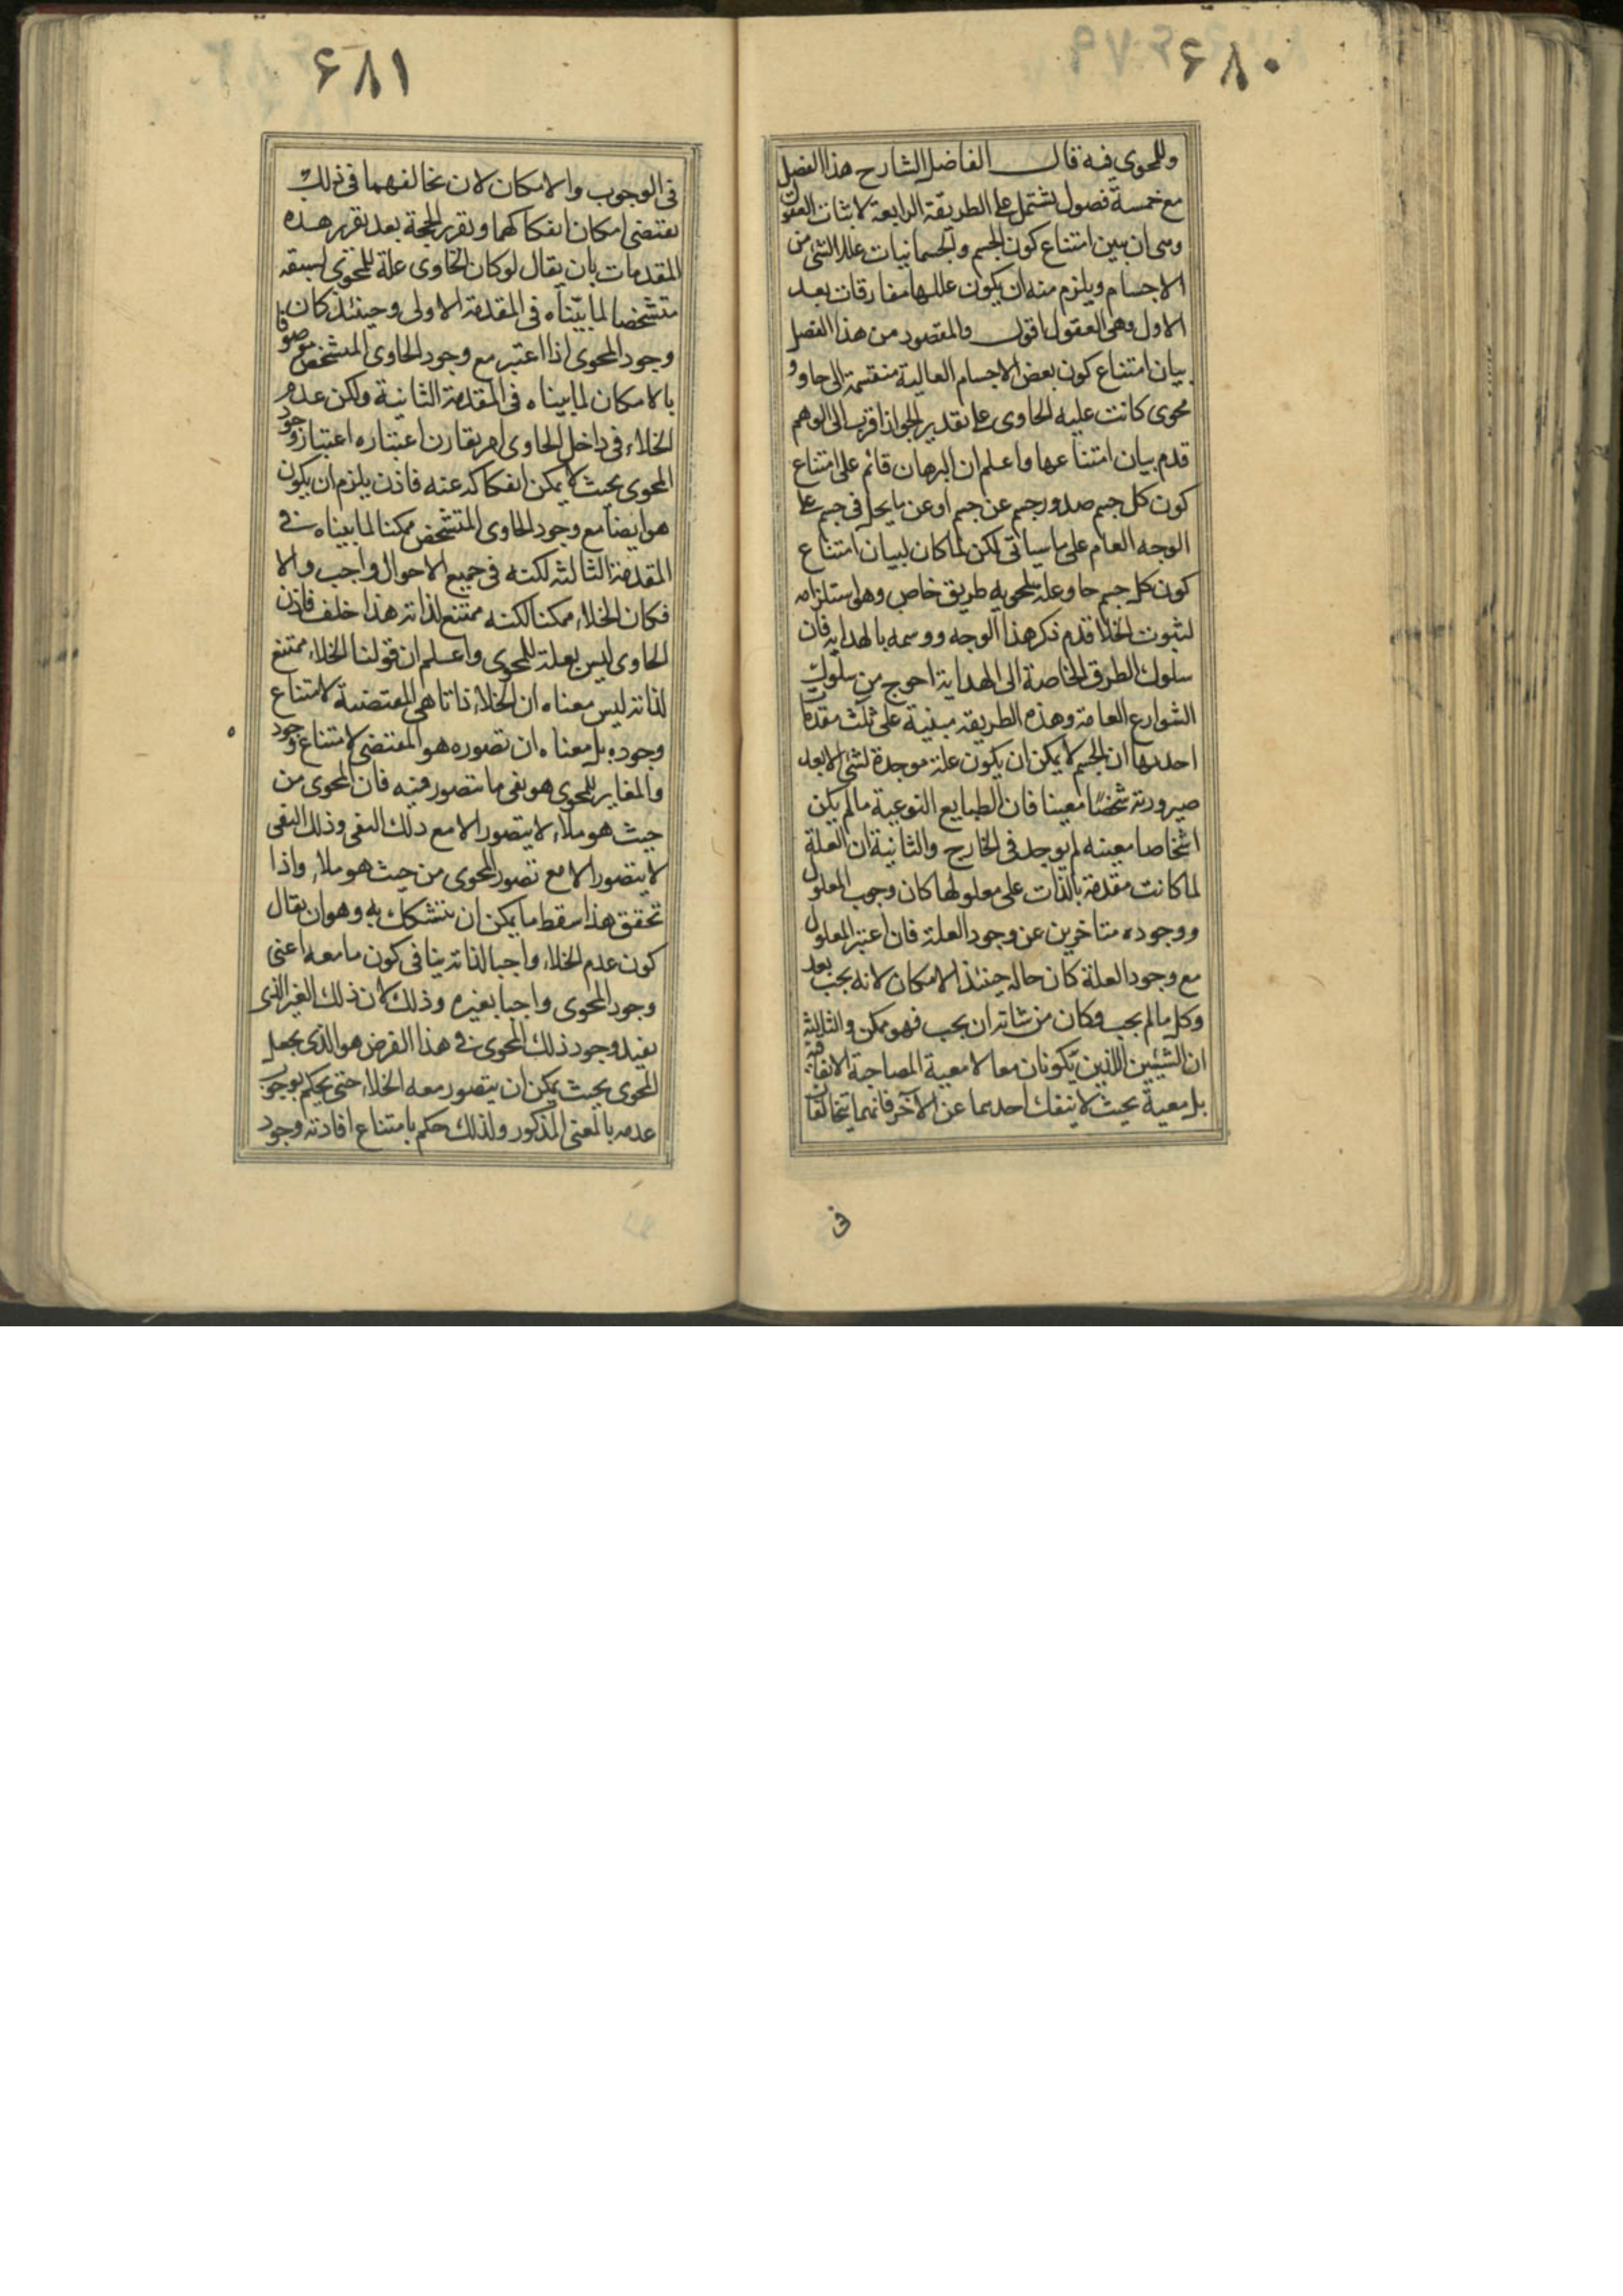 ۶۸۰
وللمحوي فيه قال الفاضل الشارح هذا الفصل
مع خمسة فصول تشتمل على الطريقة الرابعة لاثبات العقول
وهي ان يبين امتناع كون الجسم والجسمانيات علل الشئ من
الاجسام ويلزم منه ان يكون عللها مفارقات بعد
الاول وهي العقول اقول والمقصود من هذا الفصل
بيان امتناع كون بعض الاجسام العالية منقسمة الى حاو و
محوى كانت علية الحاوى على تقدير الجواز اقرب الى الوهم
قدم بيان امتناعها واعلم ان البرهان قائم على امتناع
كون كل جسم صدور جسم عن جسم او عن ما يحل فى جسم على
الوجه العام على ما سياتى لكن لما كان لبيان امتناع
كون كل جسم حاو علة لمحويه طريق خاص وهو استلزامه
لثبوت الخلأ قدم ذكر هذا الوجه ووسمه بالهداية فان
سلوك الطرق الخاصة الى الهداية احوج من سلوك
الشوارع العامة وهذه الطريقة مبنية على ثلث مقدمات
احديها ان الجسم لا يمكن ان يكون علة موجدة لشئ الا بعد
صيرورته شخصا معينا فان الطبايع النوعية ما لم يكن
اشخاصا معينه لم يوجد فى الخارج والثانية ان العلة
لما كانت مقدمة بالذات على معلولها كان وجوب المعلول
ووجوده متاخرين عن وجود العلة فان اعتبر المعلول
مع وجود العلة كان حاله حينئذ الامكان لانه يجب بعد
وكل ما لم يجب وكان من شانه ان يجب فهو ممكن والثالثة
ان الشيئين اللذين يكونان معا لا معية المصاحبة الاتفاقية
بل معية بحيث لا ينفك احدهما عن الآخر فانهما يتخالفان
فى
۶۸۱
فى الوجوب والامكان لان تخالفهما فى ذلك
يقتضى امكان انفكاكهما وتقرير الحجة بعد تقرير هذه
المقدمات بان يقال لو كان الحاوى علة للمحوى لسبقه
متشخصا لما بيّناه فى المقدمة الاولى وحينئذ كان
وجود المحوى اذا اعتبر مع وجود الحاوى المتشخص موصوفا
بالامكان لما بيناه فى المقدمة الثانية ولكن عدم
الخلاء فى داخل الحاوى امر يقارن اعتباره اعتبار وجود
المحوى بحيث لا يمكن انفكاكه عنه فاذن يلزم ان يكون
هو ايضا مع وجود الحاوى المتشخص ممكنا لما بيناه فى
المقدمة الثالثه لكنه فى جميع الاحوال واجب والا
فكان الخلاء ممكنا لكنه ممتنع لذاته هذا خلف فاذن
الحاوى ليس بعلة للمحوى واعلم ان قولنا الخلاء ممتنع
لذاته ليس معناه ان للخلاء ذاتا هى المقتضية لامتناع
وجوده بل معناه ان تصوره هو المقتضى لامتناع وجود
والمغاير للمحوى هو نفى ما يتصور منه فان المحوى من
حيث هو ملاء لا يتصور الا مع ذلك النفى وذلك النفى
لا يتصور الا مع تصور المحوى من حيث هو ملاء واذا
تحقق هذا سقط ما يمكن ان يتشكك به وهو ان يقال
كون عدم الخلاء واجبا لذاته ينافى كون ما معه اعنى
وجود المحوى واجبا بغيره وذلك لان ذلك الغير الذى
يفيد وجود ذلك المحوى فى هذا الفرض هو الذى يجعل
المحوى بحيث يمكن ان يتصور معه الخلاء حتى يحكم بوجوب
عدمه بالمعنى المذكور ولذلك حكم بامتناع افادته وجود